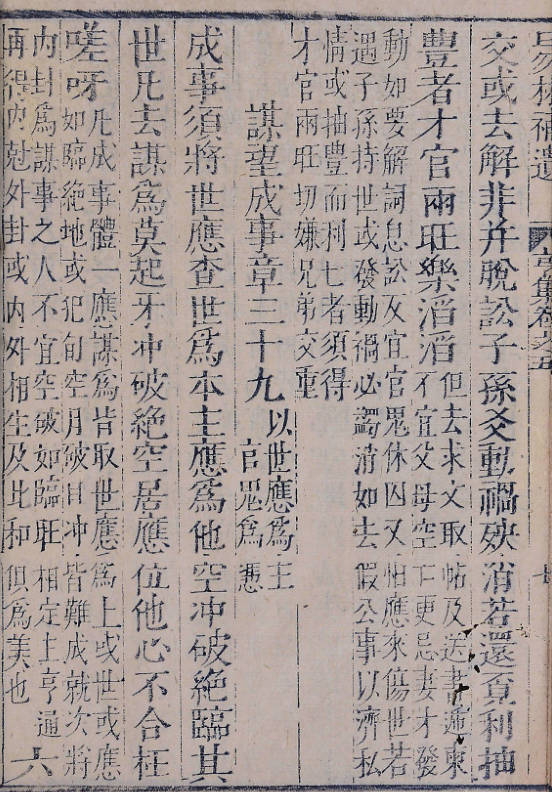 易林補遺
集卷之五
交或去解非并脫訟子孫爻動禍殃消若還貢利抽
豊者才官兩旺樂滔滔
但去求文取帖及送書遞柬
不宜父母空亡更忌妻才發
動如要解詞息訟反宜官鬼休囚又怕應來傷世若
遇子孫持世或發動禍必蠲清如去假公事以濟私
情或抽豊而利七者須得
才官兩旺切嫌兄弟交重
謀望成事章三十九
以世應為主
官鬼為憑
成事須將世應查世為本主應為他空冲破絕臨其
世凡去謀為莫起牙冲破絕空居應位他心不合枉
嗟呀
凡成事體一應謀為皆取世應為上或世或應
如臨絕地或犯旬空月破日冲皆難成就次將
内封為謀事之人不宜空破如臨旺相定上亨通
再得内尅外卦或内外相生及比和俱為美也
六